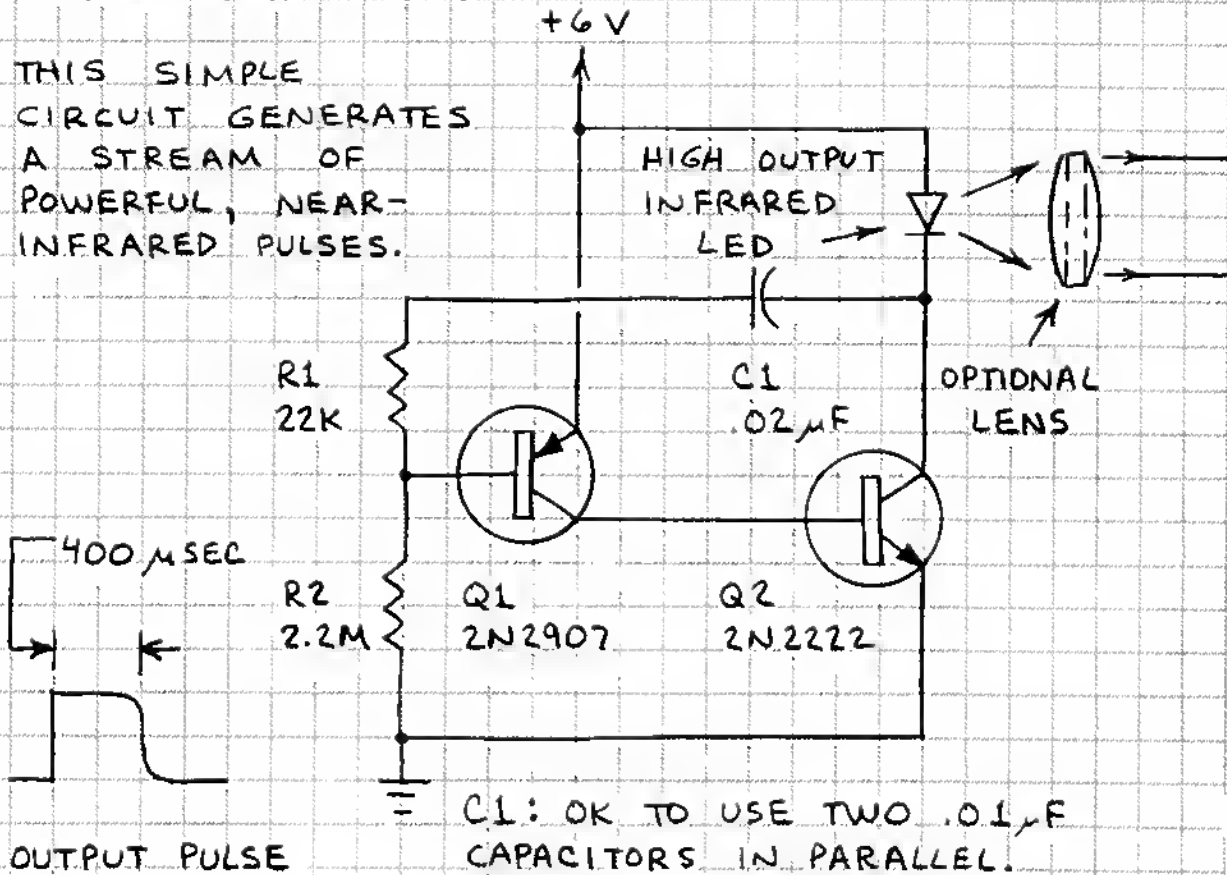 +6 V
THIS SIMPLE
CIRCUIT GENERATES
A STREAM OF
POWERFUL, NEAR-
INFRARED PULSES.
HIGH OUTPUT
INFRARED
LED
R1
22K
C1
.02 μF
OPTIONAL
LENS
400 μSEC
R2
2.2M
Q1
2N2907
Q2
2N2222
OUTPUT PULSE
C1: OK TO USE TWO .01 μF
CAPACITORS IN PARALLEL.